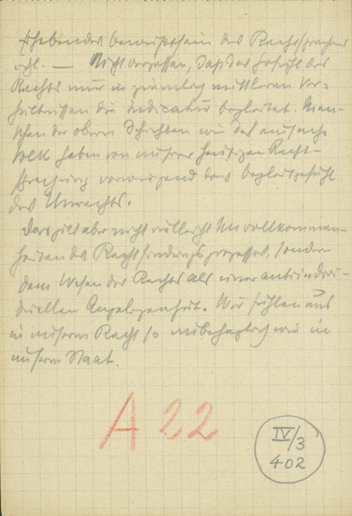 Erhebendes Bewußtsein des Rechtsprechens
vgl. — Nicht vergessen, daß das Gefühl des
Rechts nur in ziemlich mittleren Ver-
hältnissen die Judicatur begleitet. Men-
schen der obern Schichten wie das einfache
Volk haben von unserer heutigen Recht-
sprechung vorwiegend das Begleitgefühl
des Unrechts.
Das gilt aber nicht vielleicht Unvollkommen-
heiten des Rechtfindungsprozesses, sondern
dem Wesen des Rechts als einer antiindivi-
duellen Angelegenheit. Wir fühlen uns
in unserm Recht so unbehaglich wie in
unserm Staat.
A 22
IV/3
402